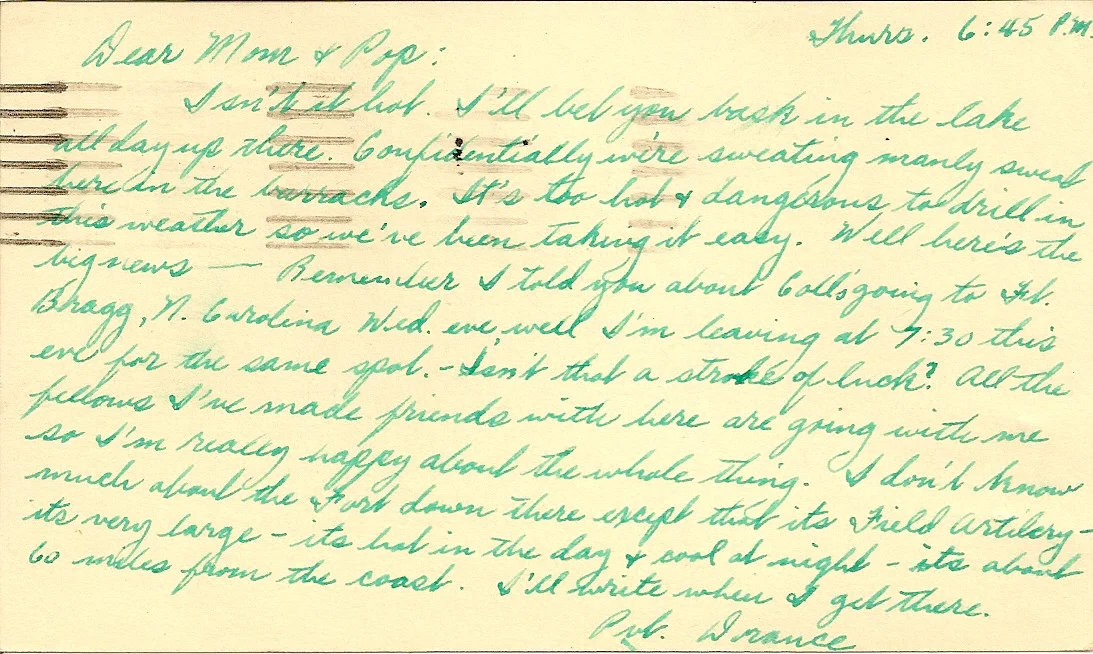 Thurs. 6:45 P.M.
Dear Mom & Pop:
Isn't it hot. I'll bet you bask in the lake
all day up there. Confidentially we're sweating manly sweat
here in the barracks. It's too hot & dangerous to drill in
this weather so we've been taking it easy. Well here's the
big news — Remember I told you about going to Ft.
Bragg, N. Carolina Wed. eve well I'm leaving at 7:30 this
eve for the same spot. - Isn't that a stroke of luck? All the
fellows I've made friends with here are going with me
so I'm really happy about the whole thing. I don't know
much about the Fort down there except that its Field Artilery -
its very large - its hot in the day & cool at night - its about
60 miles from the coast. I'll write when I get there.
Pvt. Orance